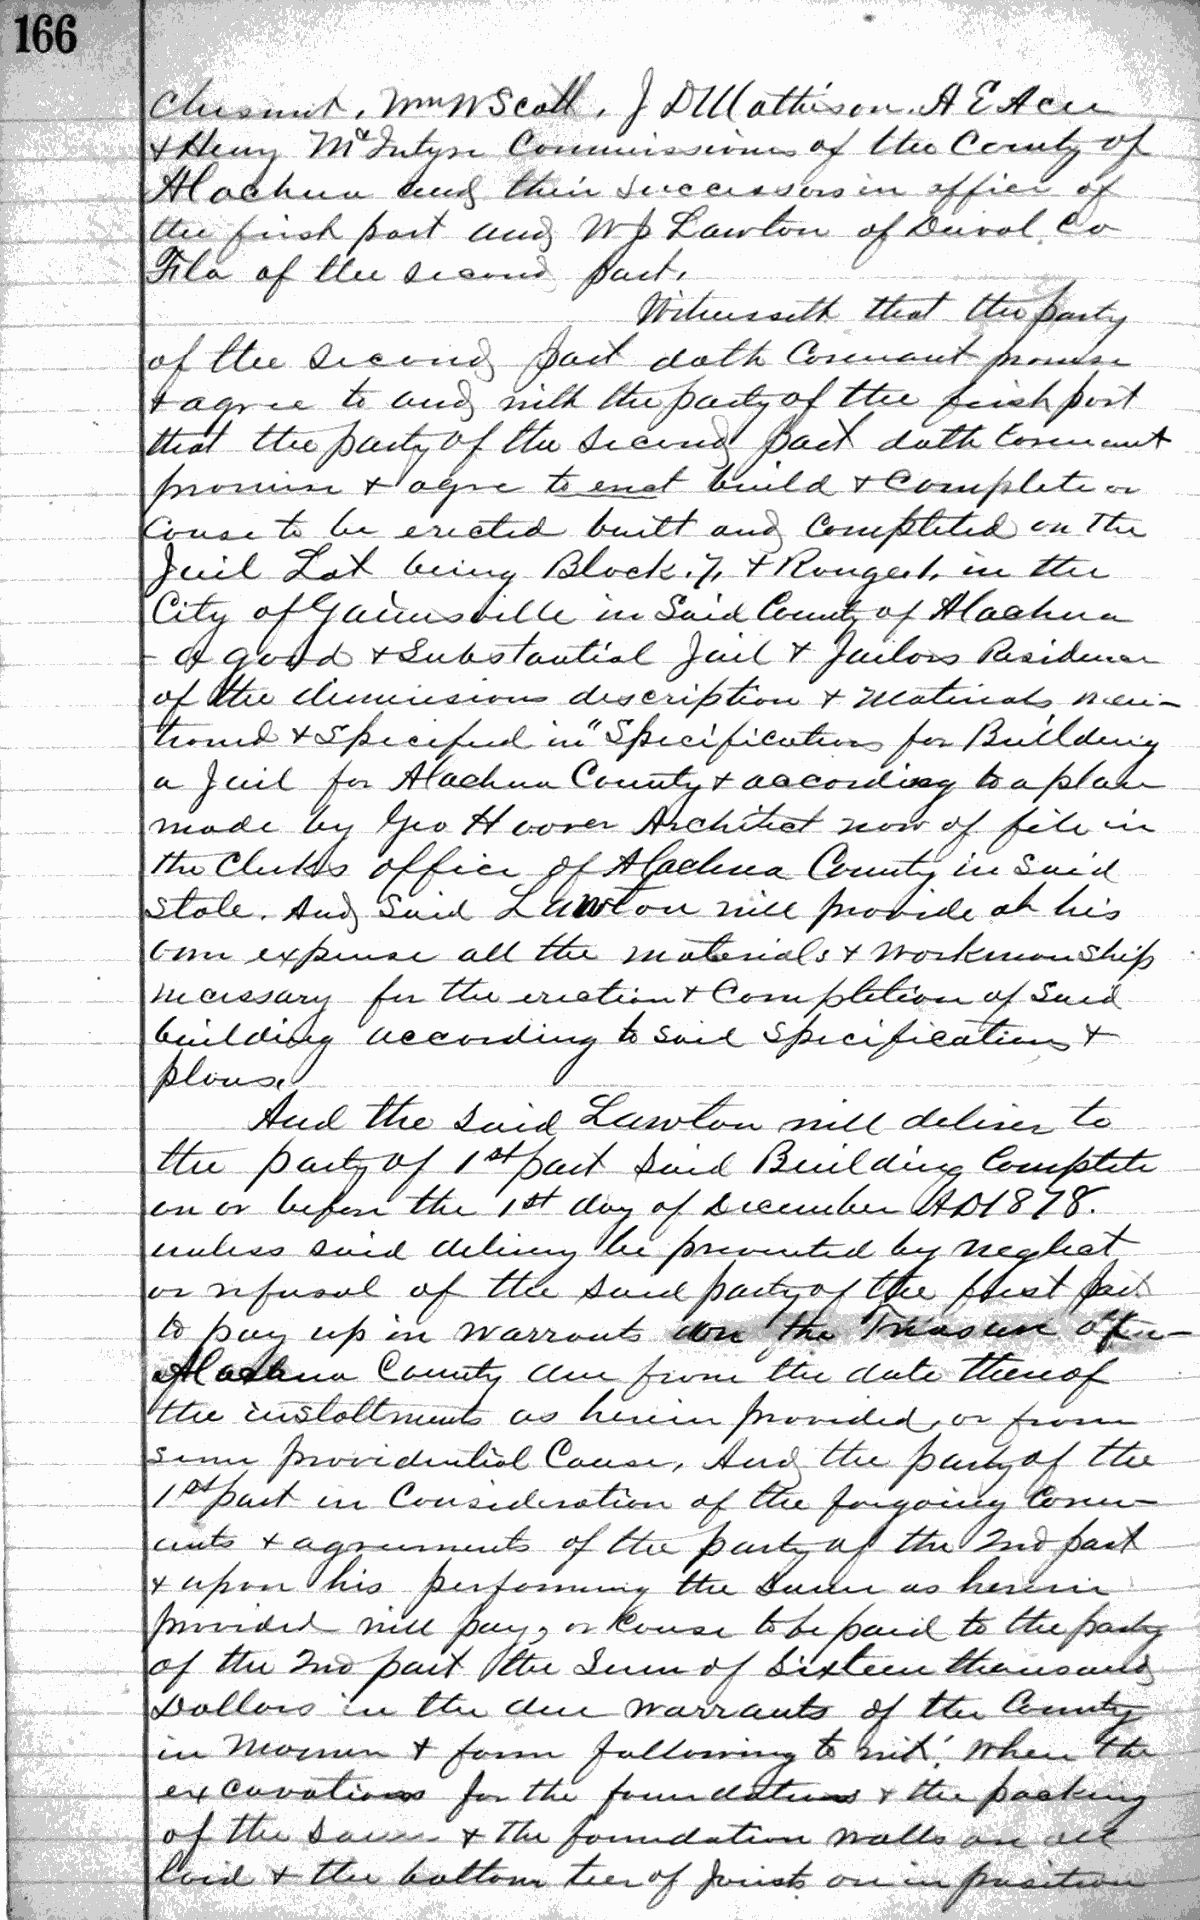 166
Chesnut, Wm W Scott, J D Matthison. A E Acee
& Henry McIntyre Commissioners of the County of
Alachua and their successors in office of
the first part and W J Lawton of Duval Co
Fla of the second part,
Witnesseth that the party
of the second part doth Covenant promise
& agree to and with the party of the first part
that the party of the second part doth Covenant
promise & agree to erect build & Complete or
Cause to be erected built and Completed on the
Jail Lot being Block. 7, & Range 1, in the
City of Gainesville in Said County of Alachua
a good & Substantial Jail & Jailors Residence
of the dimensions description & Materials men-
tioned & Specified in "Specifications for Building
a Jail for Alachua County & according to a plan
made by Geo Hoover Architect now of file in
the Clerks office of Alachua County in Said
State. And Said Lawton will provide at his
own expense all the materials & workmanship
necessary for the erection & Completion of Said
building according to Said Specifications &
plans.
And the Said Lawton will deliver to
the party of 1st part Said Building Complete
on or before the 1st day of December AD 1878.
unless said delivery be prevented by neglect
or refusal of the said party of the first part
to pay up in warrants on the Treasure of
Alachua County due from the date thereof
the installments as herein provided, or from
some providential Cause, And the party of the
1st part in Consideration of the forgoing Coven-
ants & agreements of the party of the 2nd part
& upon his performing the Same as herein
provided will pay, or Cause to be paid to the party
of the 2nd part the Sum of Sixteen thousand
Dollars in the due warrants of the County
in Manner & form following to wit: When the
excavations for the foundations & the packing
of the Same & the foundation walls are all
laid & the bottom tier of Joists are in position